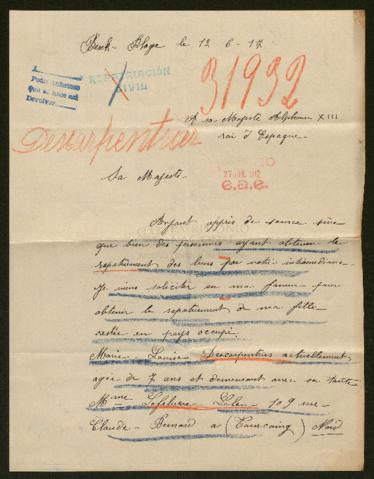 Berck-Plage le 12-6-17
REPATRIACIÓN
CIVIL
31932
A sa Majesté Alphonse XIII
roi d'Espagne.
Descarpentries
Sa Majesté.
Ayant appris de source sûre
que bien des personnes ayant obtenu le
rapatriement des leurs par votre
Je viens solliciter en ma faveur pour
obtenir le rapatriement de ma fille
restée en pays occupé.
Marie-Louise Descarpentries actuellement
agée de 7 ans et demeurant avec sa tante
Mme Lefebvre 109 rue
Claude-Bernard a (Tourcoing) Nord